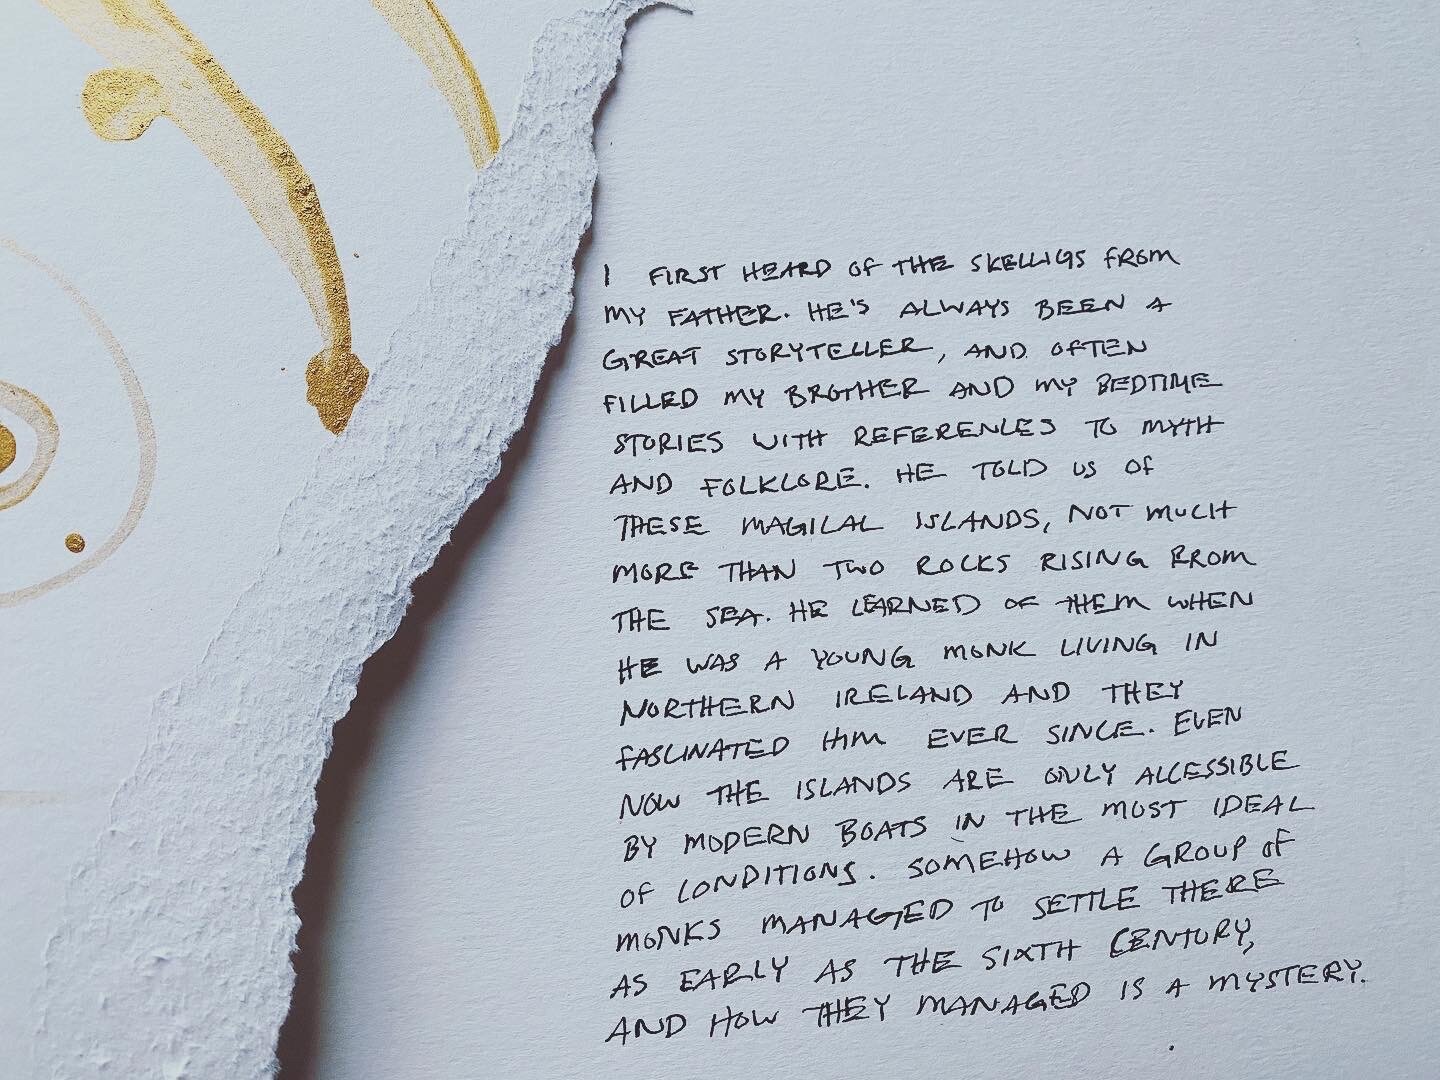 I FIRST HEARD OF THE SKELLIGS FROM
MY FATHER. HE'S ALWAYS BEEN A
GREAT STORYTELLER, AND OFTEN
FILLED MY BROTHER AND MY BEDTIME
STORIES WITH REFERENCES TO MYTH
AND FOLKLORE. HE TOLD US OF
THESE MAGICAL ISLANDS, NOT MUCH
MORE THAN TWO ROCKS RISING FROM
THE SEA. HE LEARNED OF THEM WHEN
HE WAS A YOUNG MONK LIVING IN
NORTHERN IRELAND AND THEY
FASCINATED HIM EVER SINCE. EVEN
NOW THE ISLANDS ARE ONLY ACCESSIBLE
BY MODERN BOATS IN THE MOST IDEAL
OF CONDITIONS. SOMEHOW A GROUP OF
MONKS MANAGED TO SETTLE THERE
AS EARLY AS THE SIXTH CENTURY,
AND HOW THEY MANAGED IS A MYSTERY.